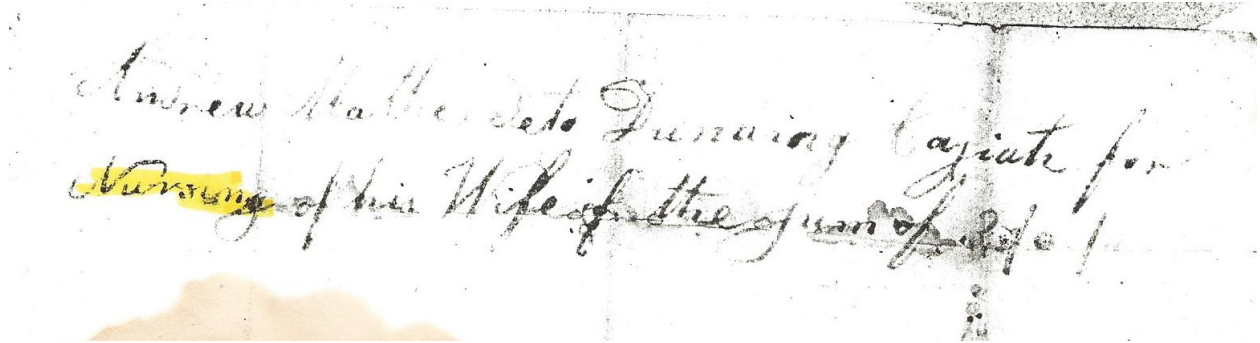 Andrew Mathe Deto Dunning Cagiah for
Nursing of his Wife the sum of